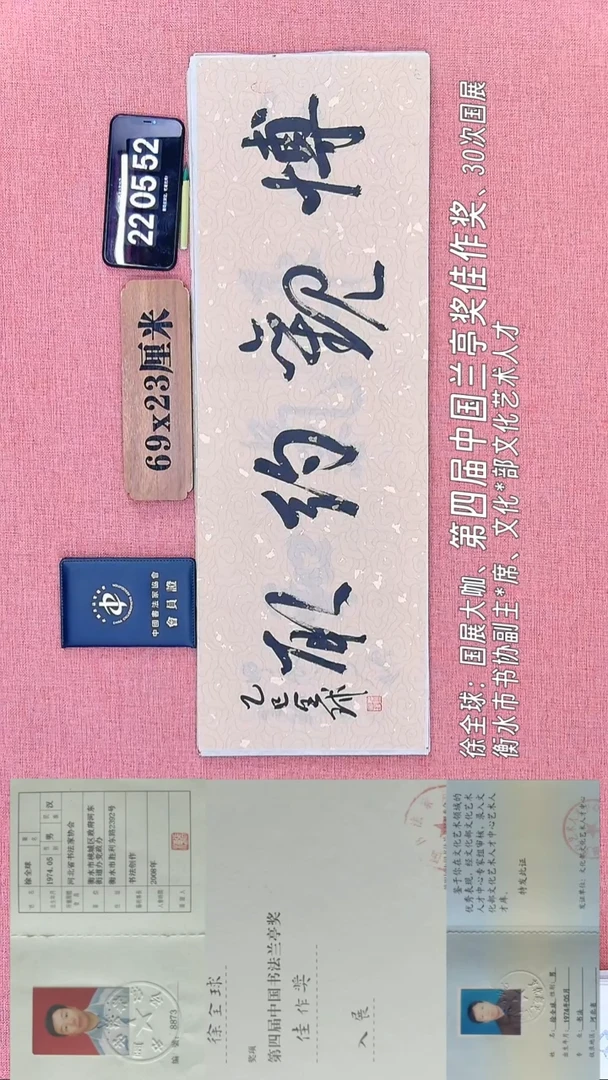 博觀約取
乙巳全球
22 05 52
69x23厘米
中國書法家協會
會員證
徐全球：国展大咖、第四届中国兰亭奖佳作奖、30次国展
衡水市书协副主*席、文化*部文化艺术人才
徐全球
1974.05 男 汉
河北省书法家协会
衡水市桃城区政府河东
街道办党政办
衡水市胜利东路2202号
书法创作
2009年
编号：8873
徐全球
奖项
第四届中国书法兰亭奖
佳作奖
入展
鉴于你在文化艺术领域的
优秀表现，经文化部文化艺术
人才中心专家组审核，录入文
化部文化艺术人才中心艺术人
才库。
特发此证
发证单位：文化部文化艺术人才中心
姓名：徐全球 性别：男
出生年月：1974年05月
专业：书法